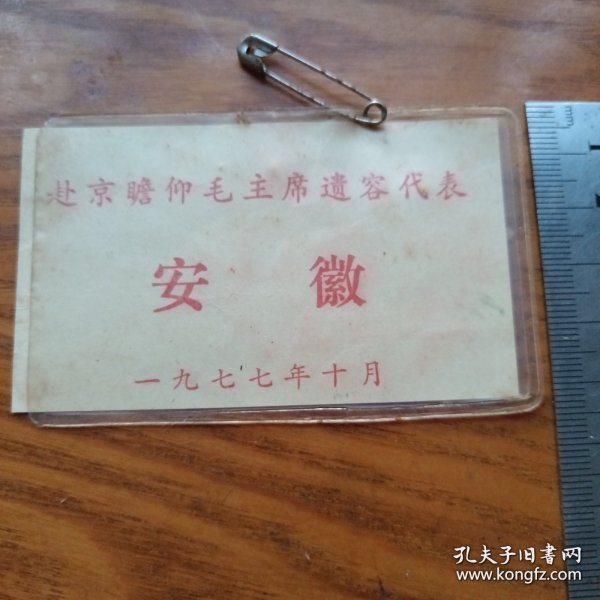 赴京瞻仰毛主席遗容代表
安 徽
一九七七年十月
孔夫子旧书网
www.kongfz.com